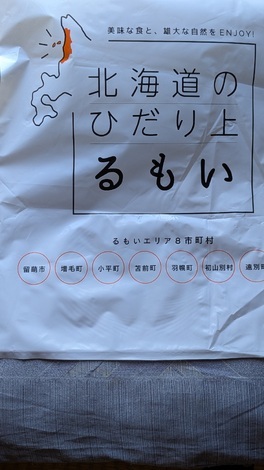 美味な食と、雄大な自然をENJOY!
北海道の
ひだり上
るもい
るもいエリア8市町村
留萌市 増毛町 小平町 苫前町 羽幌町 初山別村 遠別